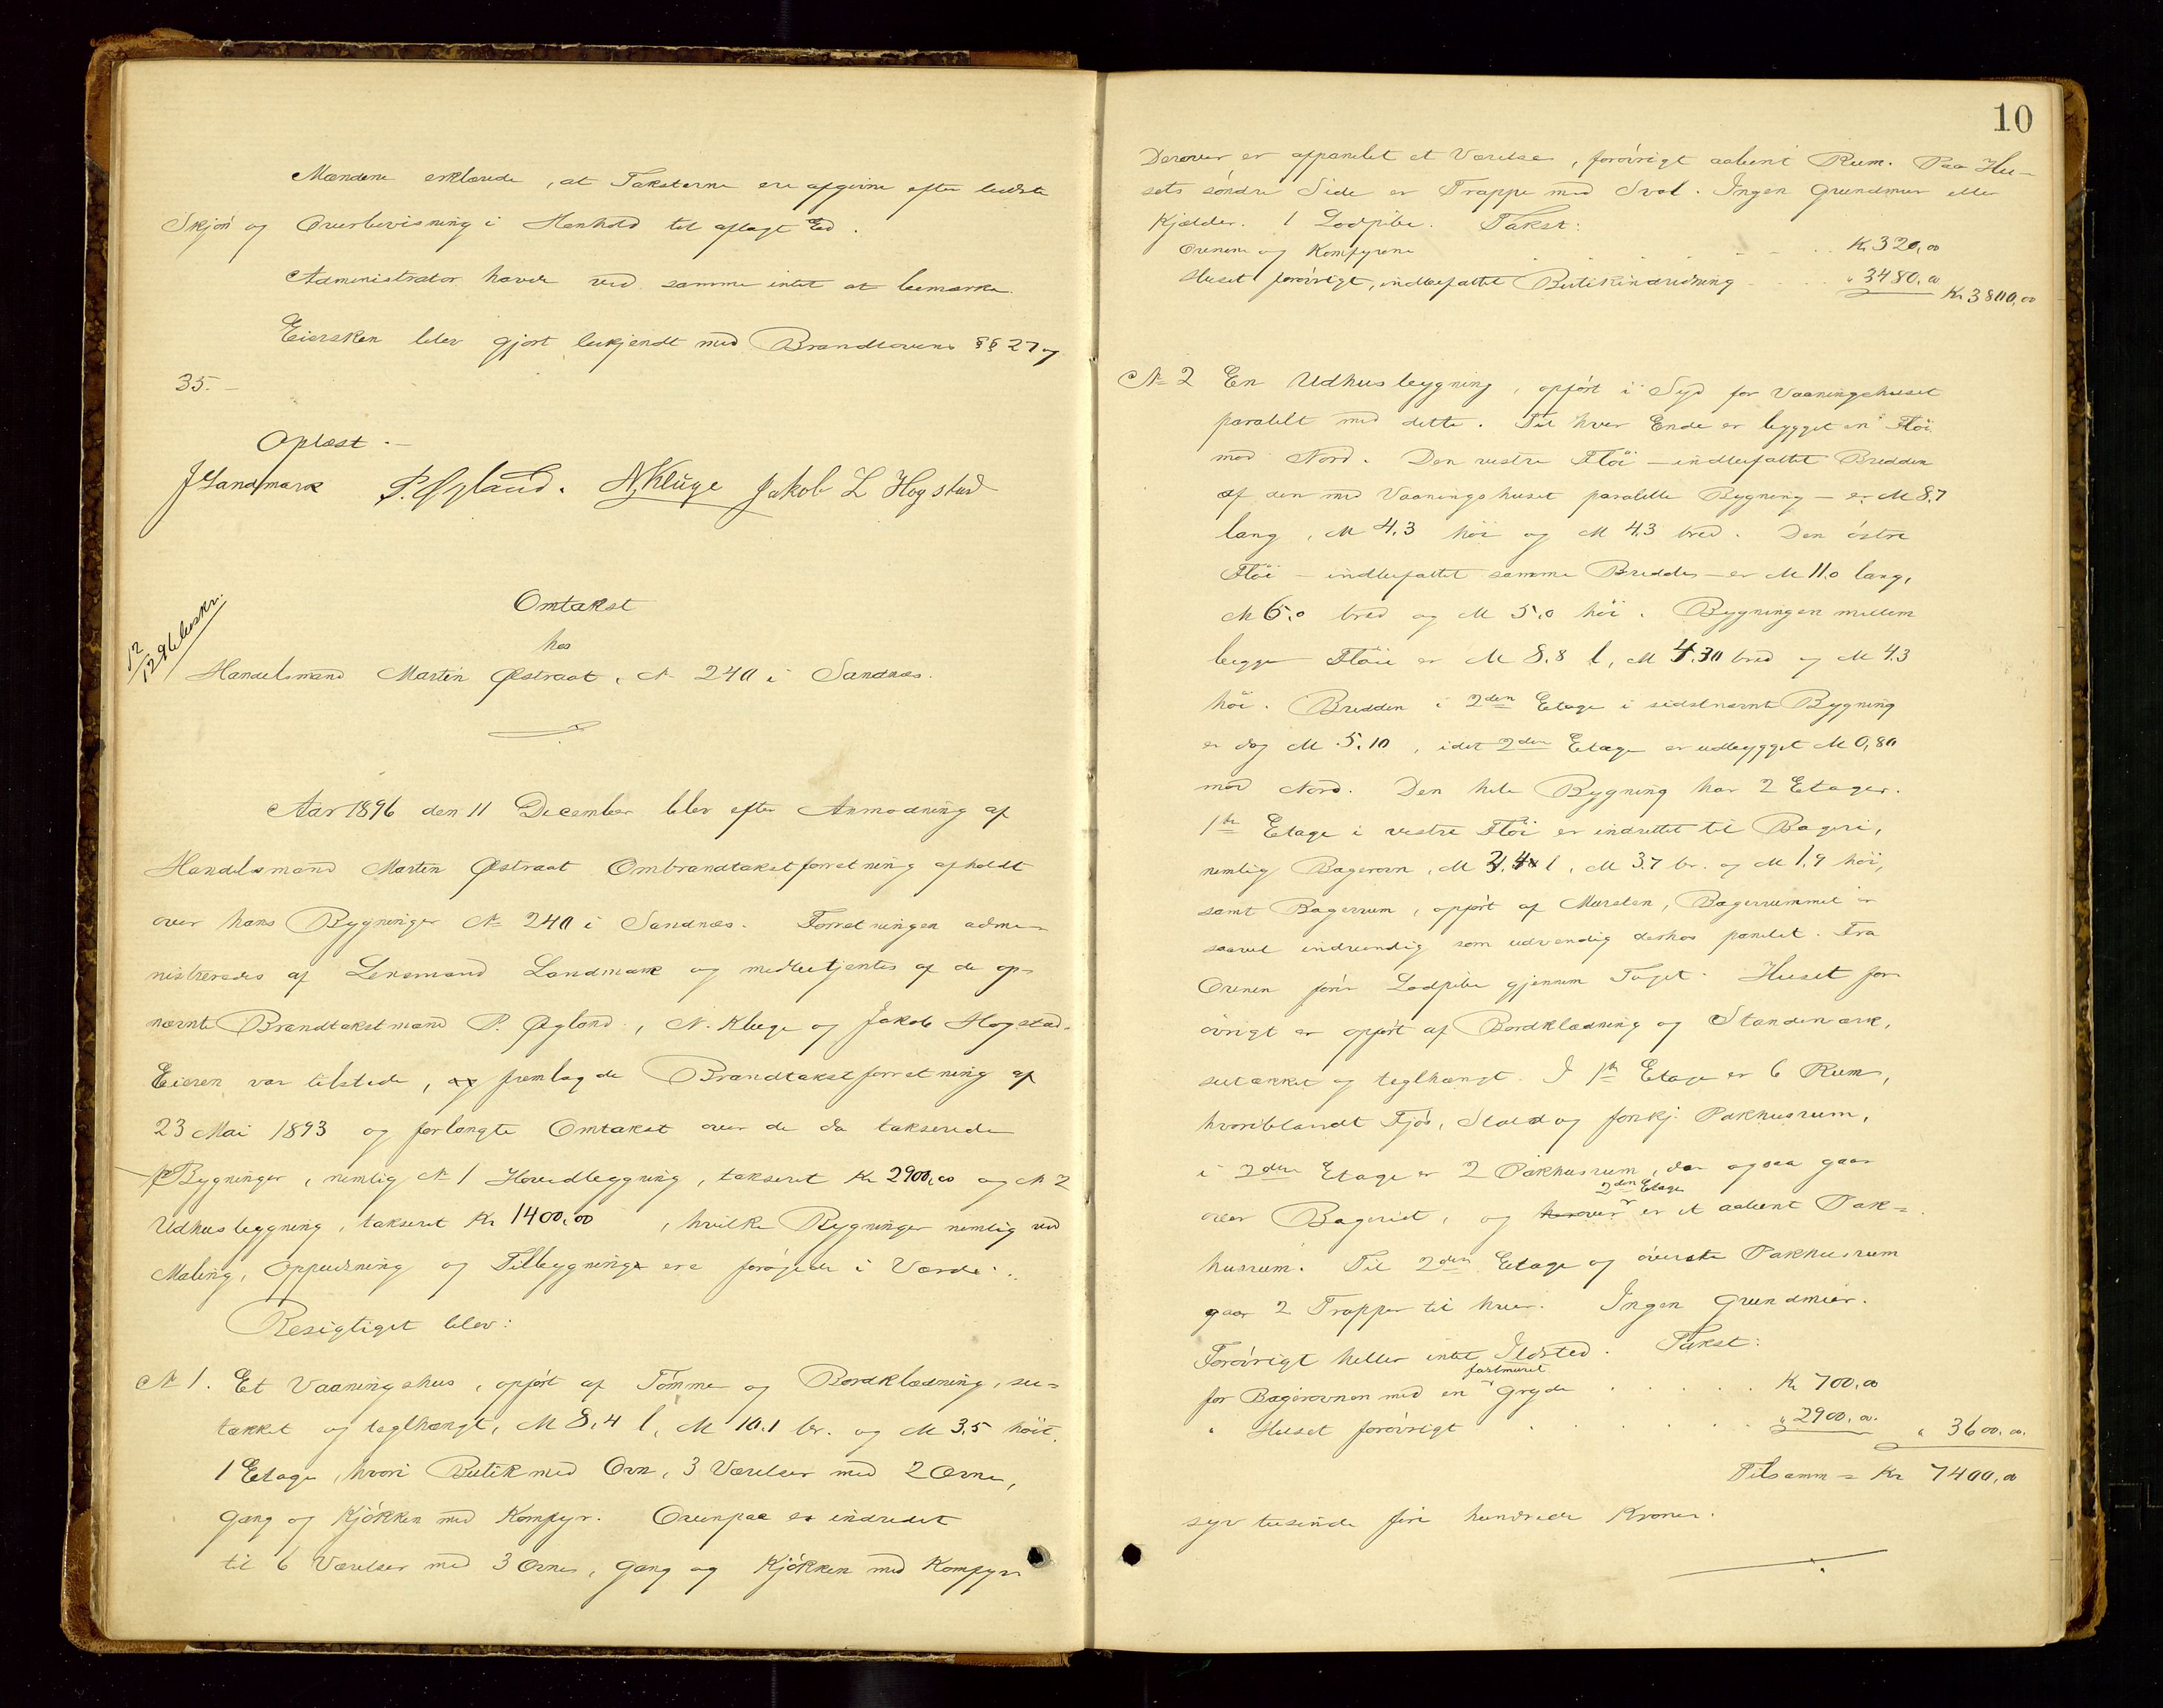 Mændene erklærede, at Taksterne ere afgivne efter bedste
Skjøn og Overbevisning i Henhold til aflagt Ed.
Administrator havde ved samme intet at bemærke.
Eiersken blev gjort bekjendt med Brandlovens §§ 27 og
35.-
Oplæst.-
J Landmark P. Øgland. N. Kluge Jakob L Hogstad
12/12 96 beskr.
Omtakst
hos
Handelsmand Martin Østraat, № 240 i Sandnæs.
Aar 1896 den 11 December blev efter Anmodning af
Handelsmand Martin Østraat Ombrandtakstforretning afholdt
over hans Bygninger № 240 i Sandnæs. Forretningen admi-
nistreredes af Lensmand Landmark og medbetjentes af de op-
nævnte Brandtakstmænd P. Øgland, N. Kluge og Jakob Hogstad.
Eieren var tilstede, og fremlagde Brandtakstforretning af
23 Mai 1893 og forlangte Omtakst over de da takserede
Bygninger, nemlig № 1 Hovedbygning, takseret Kr 2900,00 og № 2
Udhusbygning, takseret Kr 1400,00, hvilke Bygninger nemlig ved
Maling, Oppudsning og Tilbygninger ere forøgede i Værdi.
Besigtiget blev:
№ 1. Et Vaaningshus, opført af Tømmer og Bordklædning, su-
tækket og teglhængt, M 8,4 l, M 10.1 br. og M 3,5 høit.
1 Etage, hvori Butik med Ovn, 3 Værelser med 2 Ovne,
Gang og Kjøkken med Komfyr. Ovenpaa er indredet
til 6 Værelser med 3 Ovne, Gang og Kjøkken med Komfyr
10
Derover er afpanelet et Værelse, forøvrigt aabent Rum. Paa Hu-
sets søndre Side er Trappe med Sval. Ingen Grundmur eller
Kjælder. 1 Lodpibe. Takst:
Ovnene og Komfyrene Kr 320,00
Huset forøvrigt, indbefattet Butikindredning " 3480,00 Kr. 3800,00
№ 2 En Udhusbygning, opført i Syd for Vaaningshuset
paralelt med dette. Til hver Ende er bygget en Fløi
mod Nord. Den vestre Fløi - indbefattet Bredden
af den med Vaaningshuset paralelle Bygning - er M 8.7
lang, M 4,3 høi og M 4,3 bred. Den østre
Fløi - indbefattet samme Bredde - er M 11.0 lang,
M 6,0 bred og M 5,0 høi. Bygningen mellem
begge Fløie er M 8.8 l, M 4.30 bred og M 4.3
høi. Bredden i 2den Etage i sidstnævnte Bygning
er dog M 5.10, idet 2den Etage er udbygget M 0,80
mod Nord. Den hele Bygning har 2 Etager.
1ste Etage i vestre Fløi er indrettet til Bageri,
nemlig Bagerovn, M l, M 3.7 br. og M 1.9 høi,
samt Bagerrum, opført af Mursten, Bagerrummet er
saavel indvendig som udvendig derhos panelet. Fra
Ovnen fører Lodpibe gjennem Taget. Huset for-
øvrigt er opført af Bordklædning og Standerværk,
sutækket og teglhængt. I 1ste Etage er 6 Rum,
hvoriblandt Fjøs, Stald og forskj. Pakhusrum,
i 2den Etage er 2 Pakhusrum, der ogsaa gaar
over Bageriet, og herover 2den Etage er et aabent Pak-
husrum. Til 2den Etage og øverste Pakhusrum
gaar 2 Trapper til hver. Ingen Grundmur.
Forøvrigt heller intet Ildsted. Takst:
for Bagerovnen med en fastmuret Gryde Kr 700,00
" Huset forøvrigt " 2900,00. " 3600,00.
Tilsamm = Kr 7400,00
syv tusinde fire hundrede Kroner.